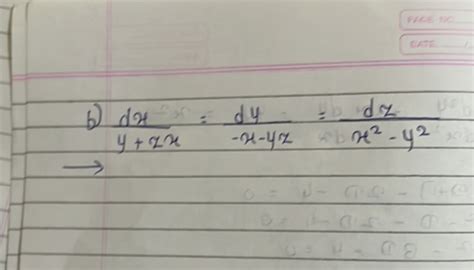 PAGE NO.
DATE
b) dx/(y + zx) = dy/(-x - yz) = dz/(x² - y²)
→